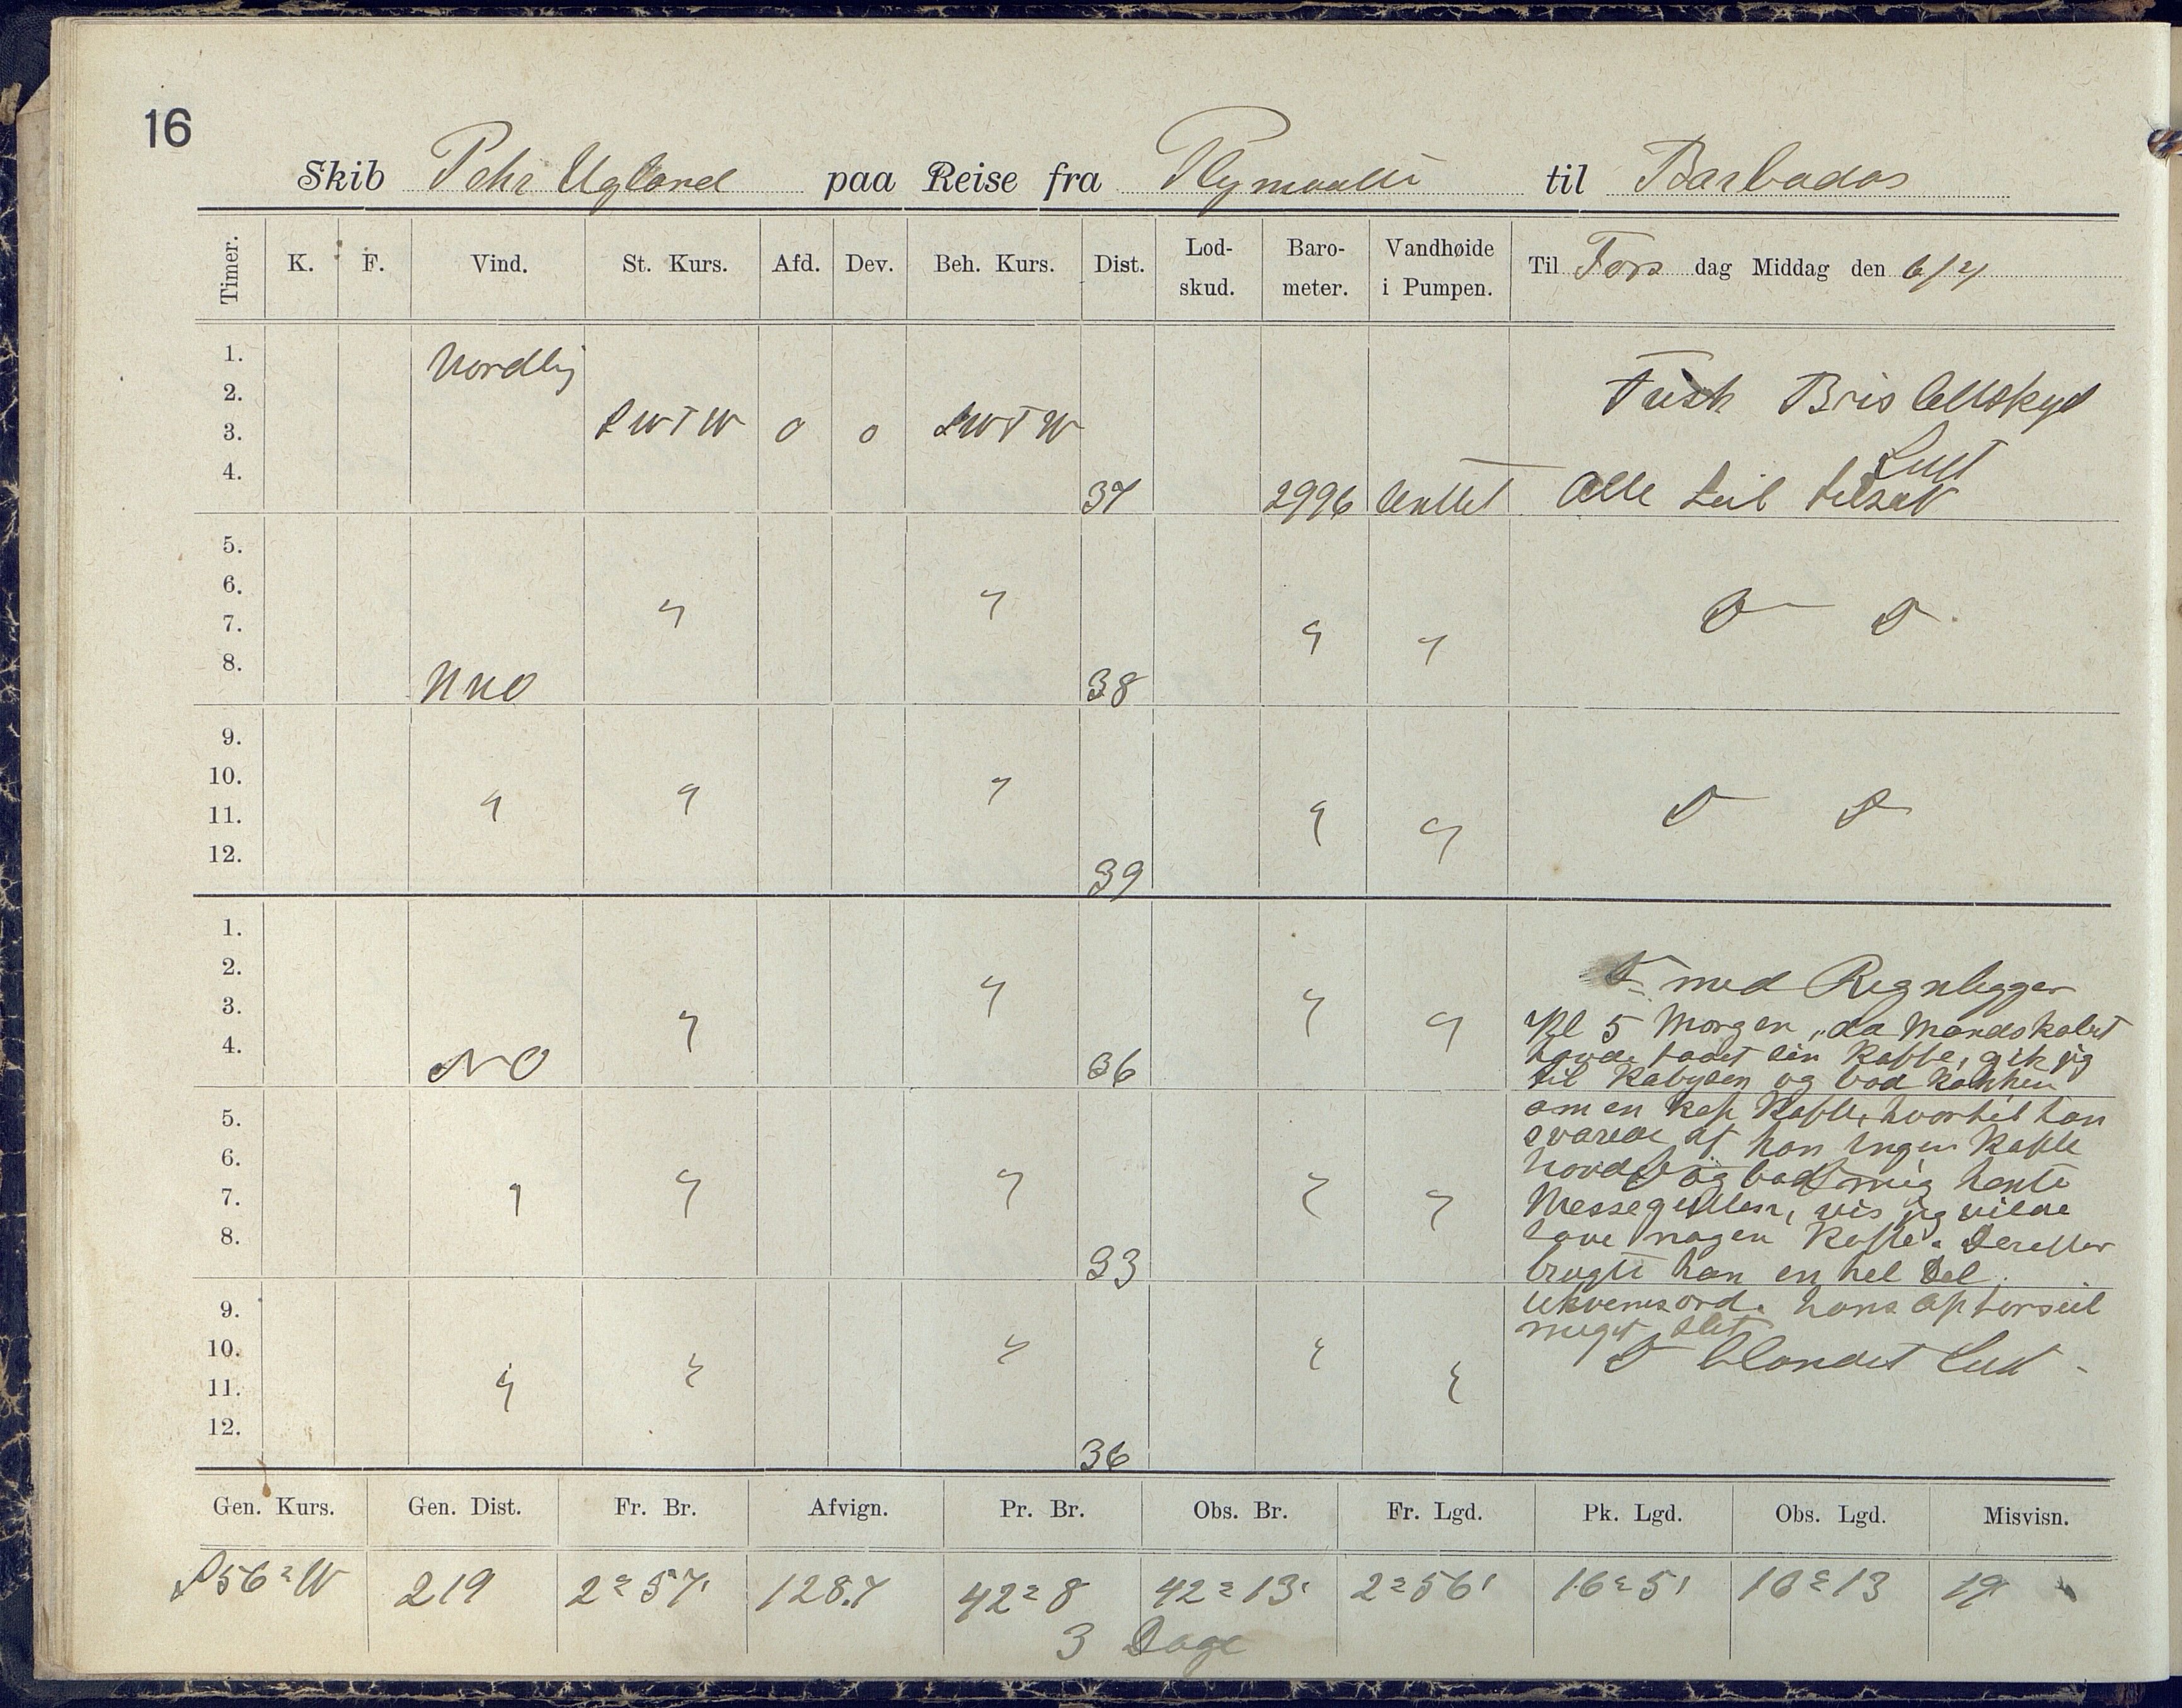 16
Skib Pehr Ugland paa Reise fra Plymouth til Barbados
Timer. K. F. Vind. St. Kurs. Afd. Dev. Beh. Kurs. Dist. Lod-skud. Baro-meter. Vandhøide i Pumpen. Til Tors dag Middag den 6/4
1. Nordlig
2. Frisk Bris Allskyet
3. SWTW 0 0 SWTW Luft
4. 37 2996 lenset Alle Seil tilsat
5.
6. " "
7. " " D D
8. NNO 38
9.
10.
11. " " " " " D D
12. 39
1.
2. D med Regnbygger
3. " " " " Kl 5 Morgen, da Mandskabet
4. NO 36 havde faaet sin Kaffe, gik jeg
til Kabysen og bad Kokken
5. om en Kop Kaffe, hvortil han
svarede at han ingen Kaffe
6. havde og bad mig hente
7. " " " " " Messegutten, vis jeg vilde
8. have nogen Kaffe. Derefter
33 brugte han en hel Del
9. Ukvemsord. hans Opførseil
meget slet
10. " " D blandet Luft
11. " " "
12. 36
Gen. Kurs. Gen. Dist. Fr. Br. Afvign. Pr. Br. Obs. Br. Fr. Lgd. Pk. Lgd. Obs. Lgd. Misvisn.
S56°W 219 2°57' 128.7 42°8 42°13' 2°56' 16°5' 16°13 19
3 Dage